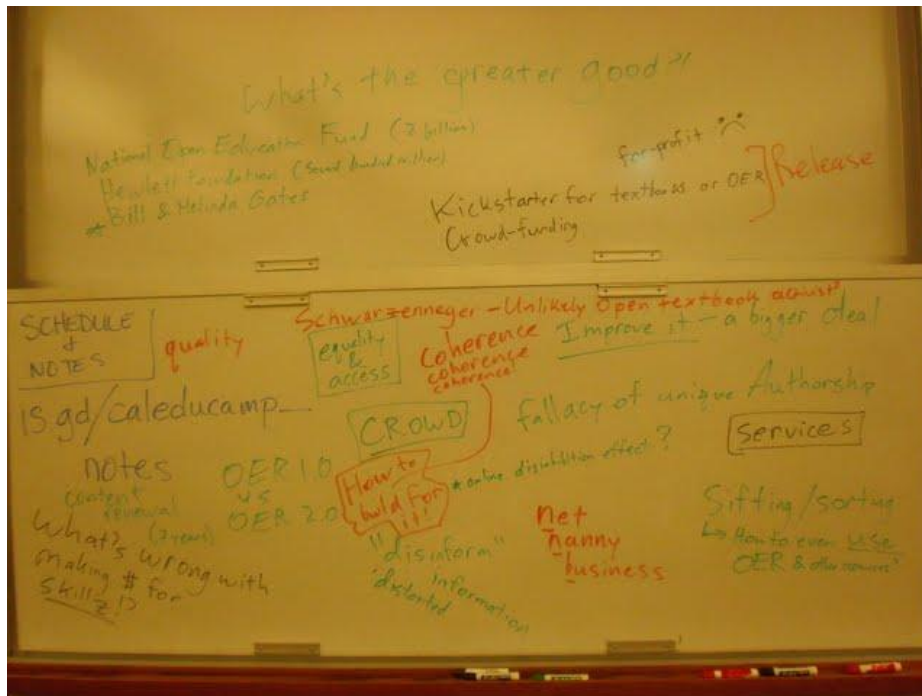 What's the greater good?"
National Open Education Fund (2 billion)
Hewlett Foundation (Several hundred million)
* Bill & Melinda Gates
for-profit
Kickstarter for textbooks or OER
Crowd-funding
Release
Schwarzenneger - Unlikely Open textbook activist
SCHEDULE
&
NOTES
quality
equity
&
access
Coherence
coherence
coherence!
Improve it - a bigger deal
is.gd/caleducamp_
CROWD
fallacy of unique Authorship
?
Services
notes
content
renewal
(2 years)
OER 1.0
vs
OER 2.0
How to
build for
"it"
* online disinhibition effect
What's wrong with
making $ for
skillz!?
"disinform"
information
"distorted
net
nanny
business
Sifting/sorting
How to even use
OER & other resources